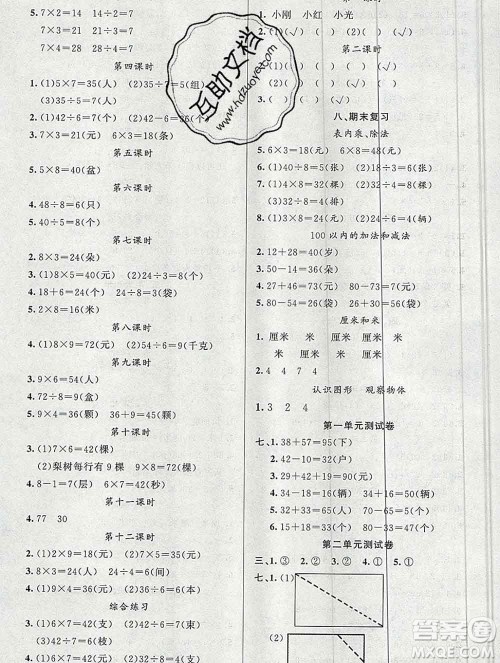 5. 7×2=14 14÷7=2
7×3=21 21÷7=3
7×4=28 28÷7=4
第四课时
1. (1)5×7=35(人) (2)35÷7=5(组)
(3)35÷5=7(人)
2. (1)6×7=42(人) (2)42÷6
3. 7×3=21(元) 6×3=18(元)
第五课时
5. 5×8=40(盆)
第六课时
4. 48÷8=6(只)
5. 40÷8=5(个)
第七课时
2. 8×3=24(朵)
3. (1)8×5=40(元) (2)24÷3=8(个)
4. 18+6=24(个) 24÷3=8(袋)
5. 2×8=16(米)
第八课时
4. (1)8×9=72(元) (2)54÷9=6(千克)
第九课时
3. 9×6=54(人)
4. 72÷8=9(盆)
5. (1)4×9=36(颗) (2)36÷4=9(颗)
第十课时
3. (1)6×7=42(棵)
(2)梨树每行有 9 棵
4. 8-1=7(层) 6×7=42(秒)
第十一课时
4. 77 30
第十二课时
2. (1)2×9=18(元) (2)42÷6=7(束)
3. (1)8×3=24(元) (2)24÷4=6(元)
4. (1)9×4=36(人) (2)36÷6=6(条)
综合练习
1. (1)6×3=18(元) (2)42÷6=7(束)
1. 小刚 小红 小光
2. (√) ( ) ( ) (√)
第二课时
八、期末复习
表内乘、除法
5. 6×3=18(元) 6×8=48(元)
6. (1)40÷8=5(张) (2)40÷5=8(张)
7. (1)4×8=32(人) (2)32÷4=8(人)
(3)32÷8=4(排)
8. (1)8×3=24(元) (2)24÷6=4(辆)
100 以内的加法和减法
1. 12+28=40(岁)
3. 50-14=36(岁)
4. 27+46=73(元) 73+7=80(元)
5. 80-54=26(袋) 26+30=56(袋)
厘米和米
1. 厘米 米 厘米 米 厘米
米 厘米 米 厘米
2. 4 4 7 4
认识图形 观察物体
1. 3 2 4
第一单元测试卷
七、1. 38+57=95(下)
2. 42-10=32(户)
3. 32+42=74(元)
4. 34-18=16(辆) 34+16=50(辆)
5. 12+70=82(元) 82-65=17(元)
6. 50-15=35(人) 70-35=35(人)
第二单元测试卷
三、1. ① 2. ② 3. ② 4. ① 5. ①
七、1. (1)
(2)
互助文档
www.hdzuoye.com